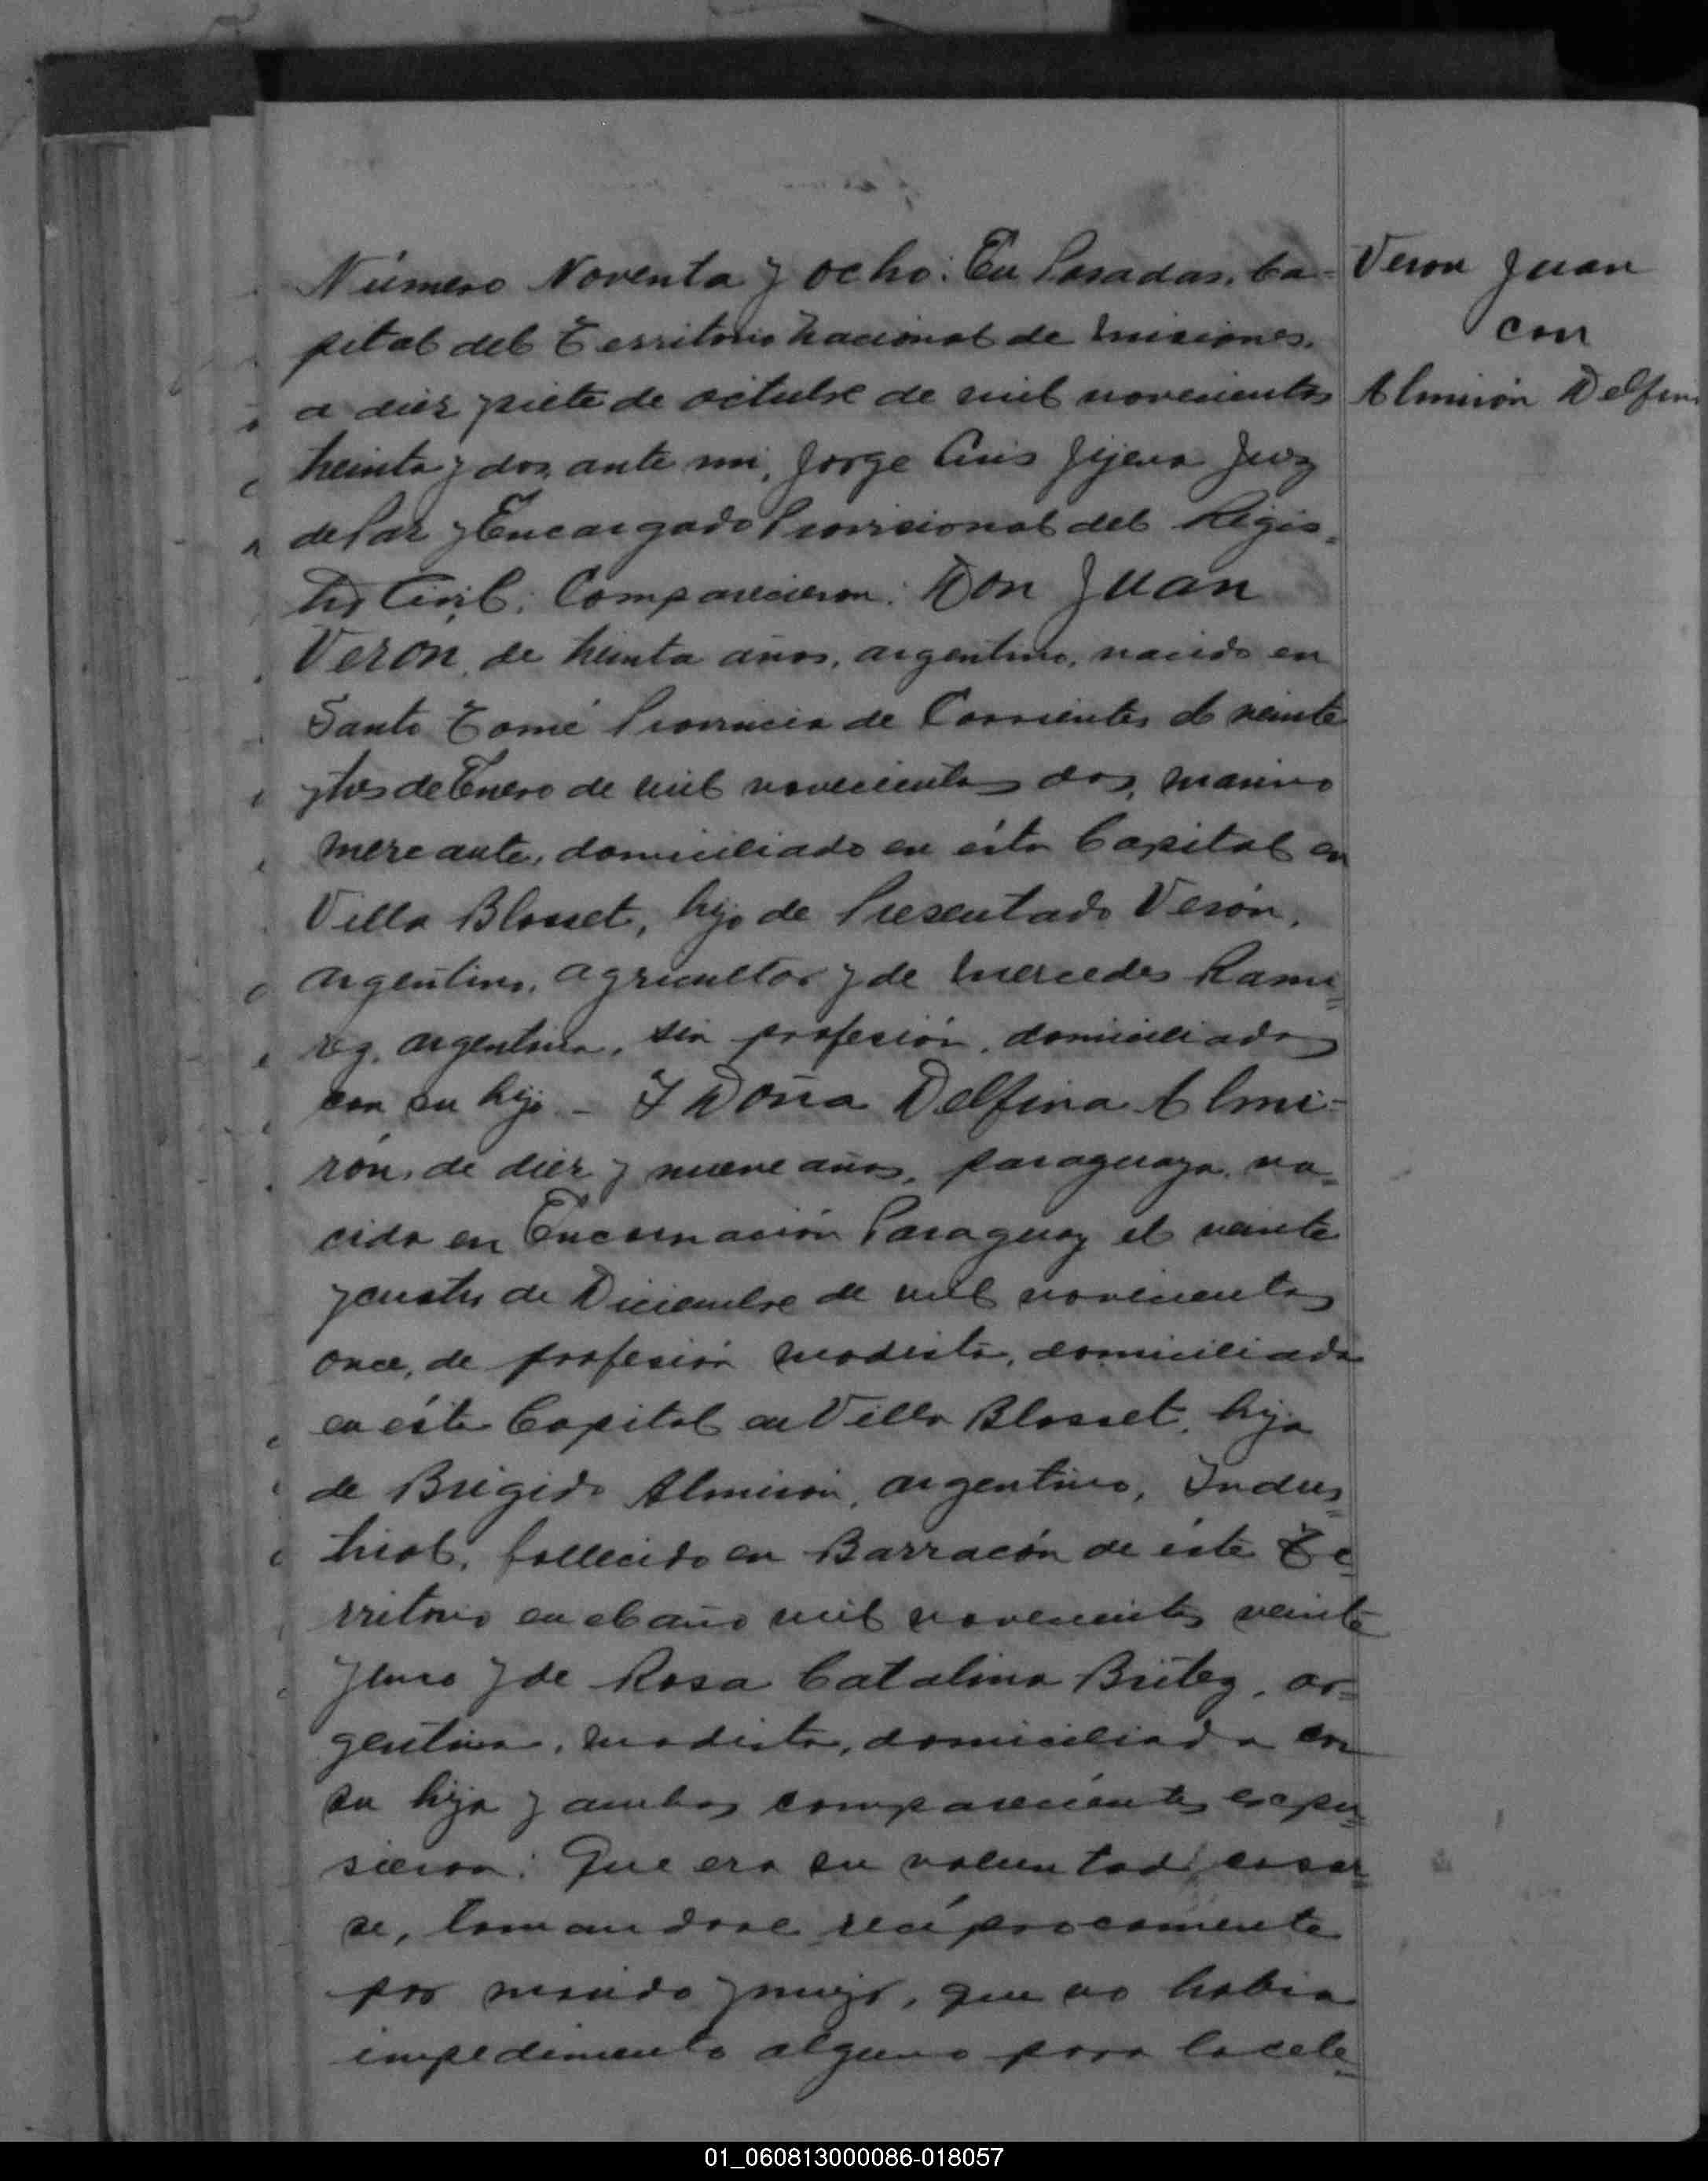 Número Noventa y ocho: En Posadas, Ca=
pital del Territorio Nacional de Misiones,
a diez y siete de octubre de mil novecientos
treinta y dos, ante mi, Jorge Luis Jijena Juez
de Paz y Encargado Provisional del Regis=
tro Civil; Comparecieron: Don Juan
Veron, de treinta años, argentino, nacido en
Santo Tomé Provincia de Corrientes el veinte
y tres de Enero de mil novecientos dos, marino
mercante, domiciliado en ésta Capital en
Villa Blosset, hijo de Presentado Verón,
argentino, agricultor y de Mercedes Rami=
rez, argentina, sin profesión, domiciliados
con su hijo - Y Doña Delfina Almi=
rón, de diez y nueve años, paraguaya, na=
cida en Encarnación Paraguay el veinte
y cuatro de Diciembre de mil novecientos
once, de profesión modista, domiciliada
en ésta Capital en Villa Blosset, hija
de Brigido Almirón, argentino, Indus=
trial, fallecido en Barracón de éste Te=
rritorio en el año mil novecientos veinte
y uno y de Rosa Catalina Britez, ar=
gentina, modista, domiciliada con
su hija y ambos comparecientes expu=
sieron: Que era su voluntad casar=
se, tomandose recíprocamente
por marido y mujer, que no habia
impedimento alguno para la cele=
Veron Juan
con
Almirón Delfina
01_060813000086-018057